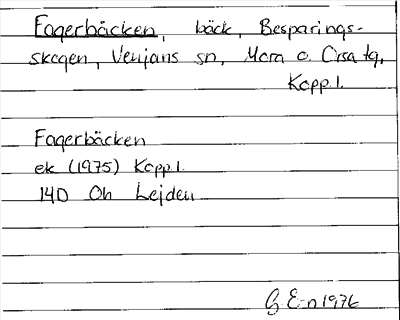 Fagerbäcken, bäck, Besparings-
skogen, Venjans sn, Mora o. Orsa tg,
Kopp. l.
Fagerbäcken
ek (1975) Kopp. l.
14D Oh Lejden
G E-n 1976